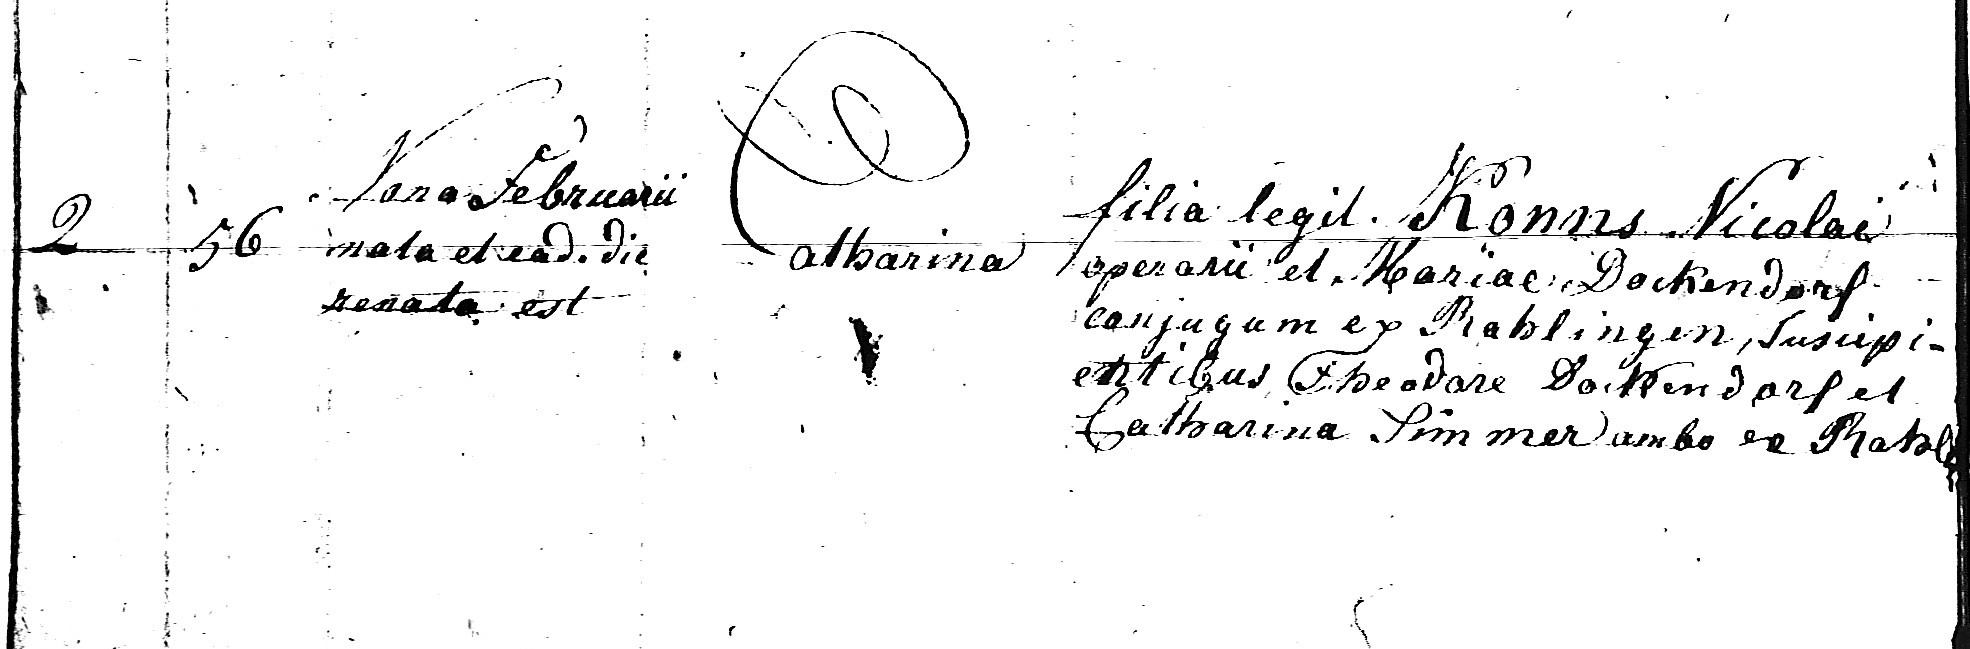 2
56
Nona Februarii
nata et ead. die
renata est
Catharina
filia legit. Konns Nicolai
operarii et Mariae Dockendorf
conjugum ex Rahlingen, suscipi-
entibus Theodore Dockendorf et
Catharina Simmer ambo ex Rahl